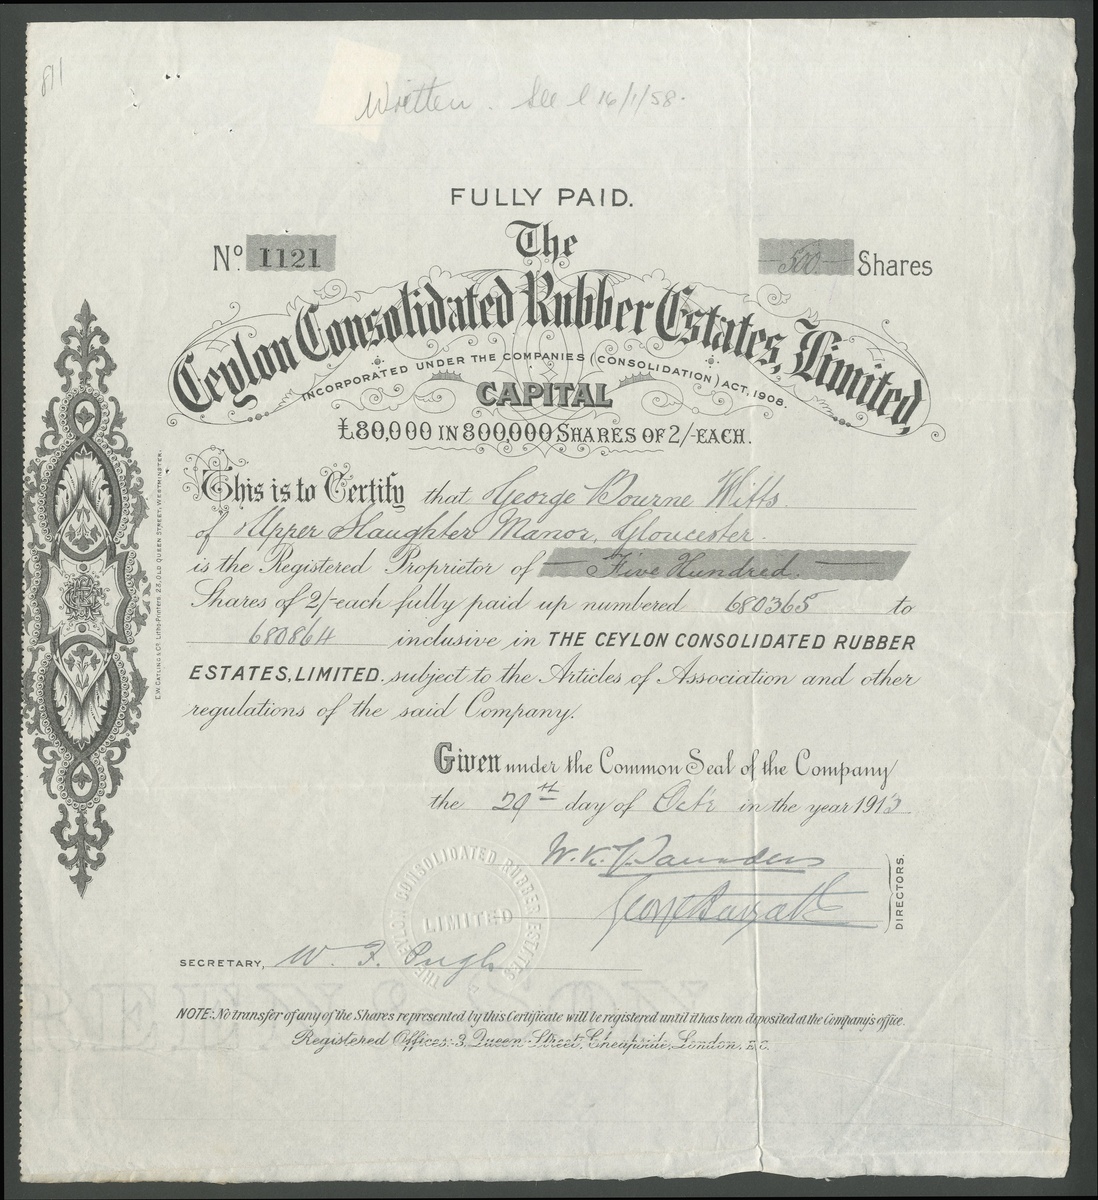 811
Written. See l 16/1/58.
FULLY PAID.
No. 1121
500 Shares
The
Ceylon Consolidated Rubber Estates, Limited,
INCORPORATED UNDER THE COMPANIES (CONSOLIDATION) ACT, 1908.
CAPITAL
£80,000 IN 800,000 SHARES OF 2/- EACH.
This is to Certify that George Bourne Witts
of Upper Slaughter Manor, Gloucester.
is the Registered Proprietor of Five Hundred.
Shares of 2/- each fully paid up numbered 680365 to
680864 inclusive in THE CEYLON CONSOLIDATED RUBBER
ESTATES, LIMITED. subject to the Articles of Association and other
regulations of the said Company.
Given under the Common Seal of the Company
the 29th day of Octr in the year 1913
DIRECTORS.
THE CEYLON CONSOLIDATED RUBBER ESTATES
LIMITED
SECRETARY, W. F. Pugh
NOTE: No transfer of any of the Shares represented by this Certificate will be registered until it has been deposited at the Company's office.
Registered Offices:- 3, Queen Street, Cheapside, London. E.C.
E.W. GATLING & Co. Litho Printers. 23, OLD QUEEN STREET, WESTMINSTER.